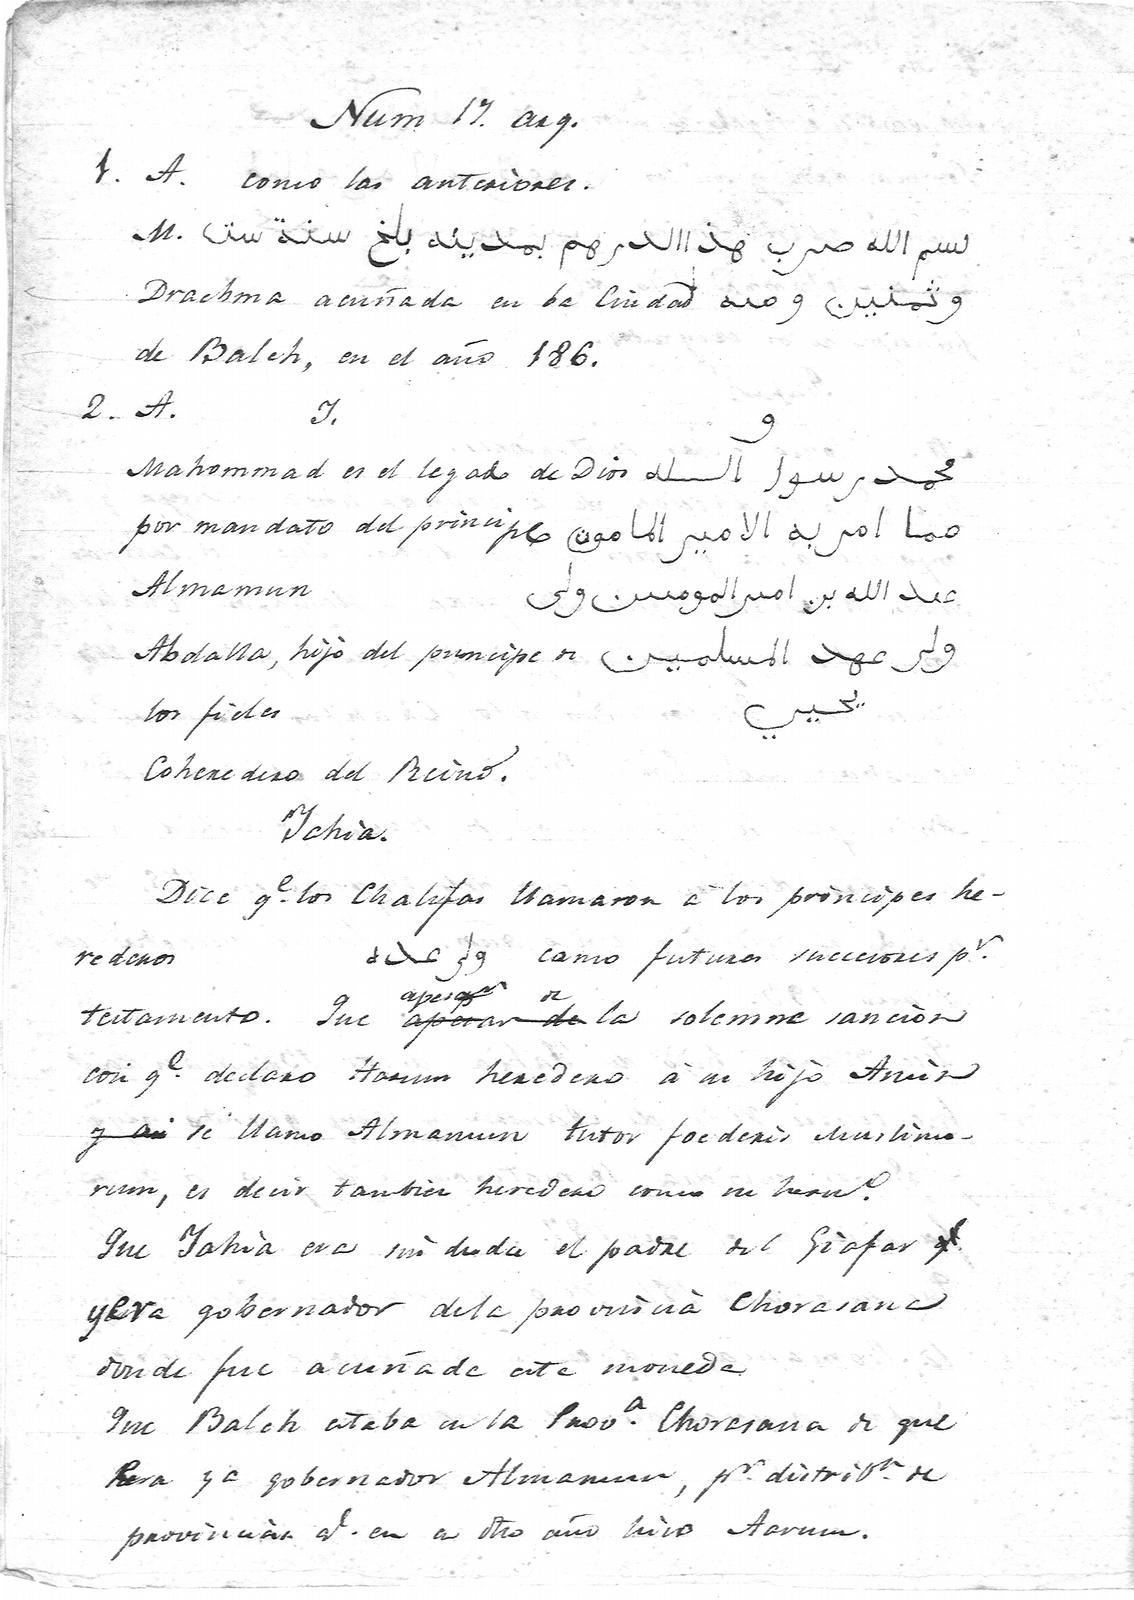 Num 17. arg.
1. A. como las anteriores.
M. بسم الله صرب هذا الدرهم بمدينه بلخ سنة ست
Drachma acuñada en la Ciudad وثمنين ومئه
de Balch, en el año 186.
2. A. I. و
Mahommad es el legado de Dios محمد رسول الله
por mandato del principe مما امر به الامير المامون
Almamun عبد الله بن امير المومنين ولى
Abdalla, hijo del principe de ولى عهد المسلمين
los fieles يحيي
Coheredero del Reino.
Ichia.
Dice qe. los Chalifas llamaron á los principes he-
rederos ولى عهده como futuros succesores pr.
testamento. Que apesar de la solemne sancion
con qe. declaro Harum heredero á su hijo Amin
se llamo Almamun tutor foederis Muslimo-
rum, es decir tambien heredero como su hermo.
Que Iahia era sin duda el padre del Giafar qe
yera gobernador dela provincia Chorasana
donde fue acuñada esta moneda
Que Balch estaba en la Prova. Chorasana de que
era ya gobernador Almamun, pr. distribn. de
provincias qe. en a dho año hizo Aarum.